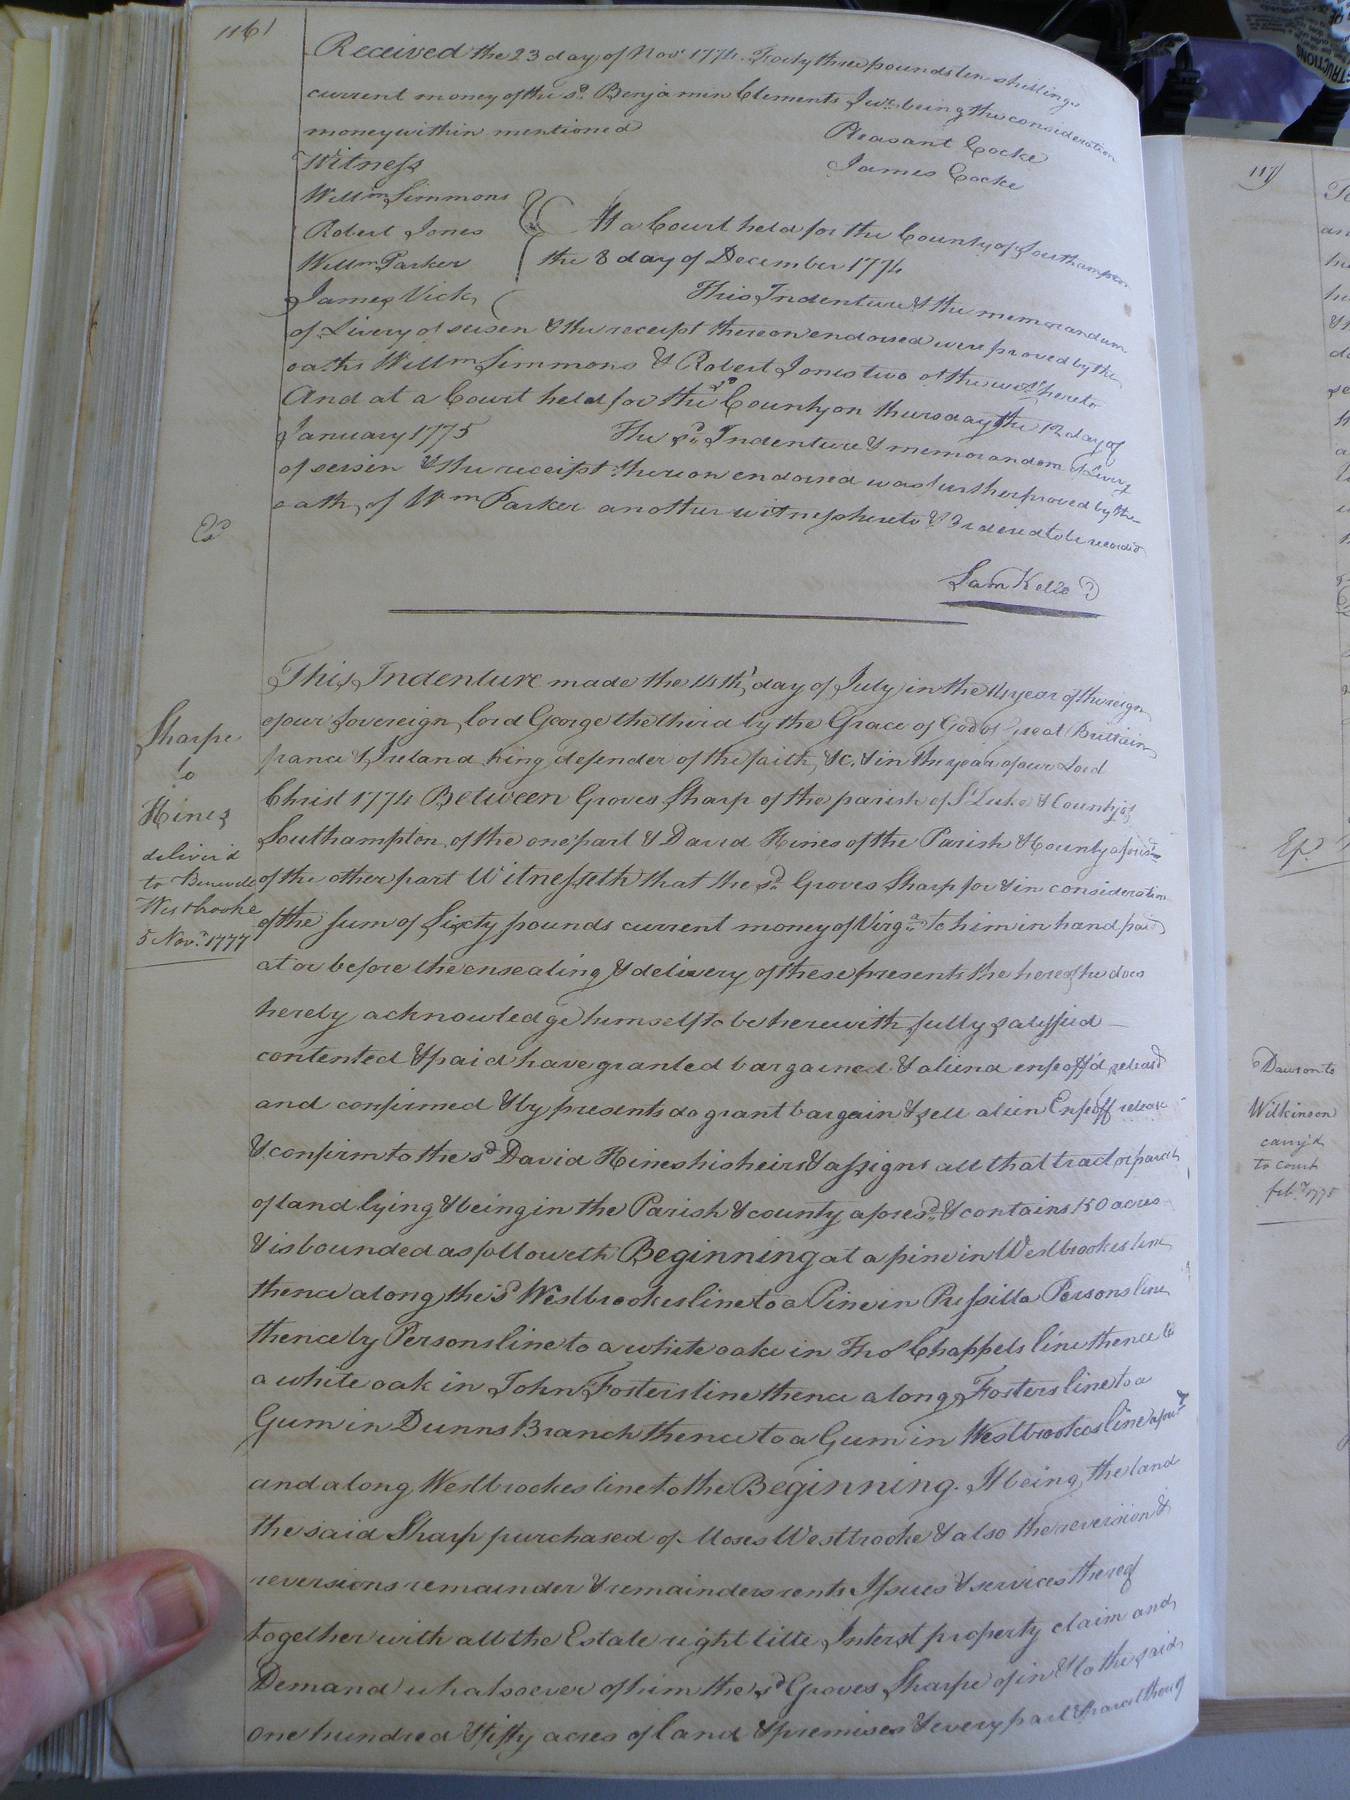 116
Received the 23 day of Nov.r 1774. Forty three pounds ten shillings
current money of the sd. Benjamin Clements Junr. being the consideration
money within mentioned
Pleasant Cocke
James Cocke
Witness
Willm Simmons
Robert Jones
Willm Parker
James Vick
At a Court held for the County of Southampton
the 8 day of December 1774
This Indenture & the memorandum
of Livery of seisen & the receipt thereon endorsed were proved by the
oaths Willm Simmons & Robert Jones two of the wits. hereto
And at a Court held for the sd County on thursday the 12 day of
January 1775 The sd. Indenture & memorandom of Livery
of seisin & the receipt thereon endorsed was further proved by the
oath of Wm Parker another witness hereto & Ordered to be recorded
Sam Kello
Sharpe
to
Hines
deliver'd
to
Westbrooke
5 Nov.r 1777
This Indenture made the 14th day of July in the 14 year of the reign
of our Sovereign lord George the third by the Grace of God of Great Brittain
france & Ireland King defender of the faith, &c, & in the year of our Lord
Christ 1774 Between Groves Sharp of the parish of St Luke & County of
Southampton of the one part & David Hines of the Parish & County aforesd.
of the other part Witnesseth that the sd. Groves Sharp for & in consideration
of the sum of Sixty pounds current money of Virga. to him in hand paid
at or before the ensealing & delivery of these presents the hereof he does
hereby acknowledge himself to be herewith fully satisfied
contented & paid have granted bargained & aliend enfeoff'd released
and confirmed & by presents do grant bargain & sell alien Enfeoff release
& confirm to the sd David Hines his heirs & assigns all that tract or parcel
of land lying & being in the Parish & county aforesd. & contains 150 acres
& is bounded as followeth Beginning at a pine in Westbrookes line
thence along the sd Westbrookes line to a Pine in Pressilla Persons line
thence by Persons line to a white oake in Thos Chappels line thence to
a white oak in John Fosters line thence along Fosters line to a
Gum in Dunns Branch thence to a Gum in Westbrookes line aforesd
and along Westbrookes line to the Beginning. It being the land
the said Sharp purchased of Moses Westbrooke & also the reversion &
reversions remainder & remainders rents Issues & services thereof
together with all the Estate right title Interst property claim and
Demand whatsoever of him the sd Groves Sharpe of in & to the said
one hundred & fifty acres of land & premises & every part & parcel thereof
117
Dawson to
Wilkinson
carry'd
to court
feb.y 1775